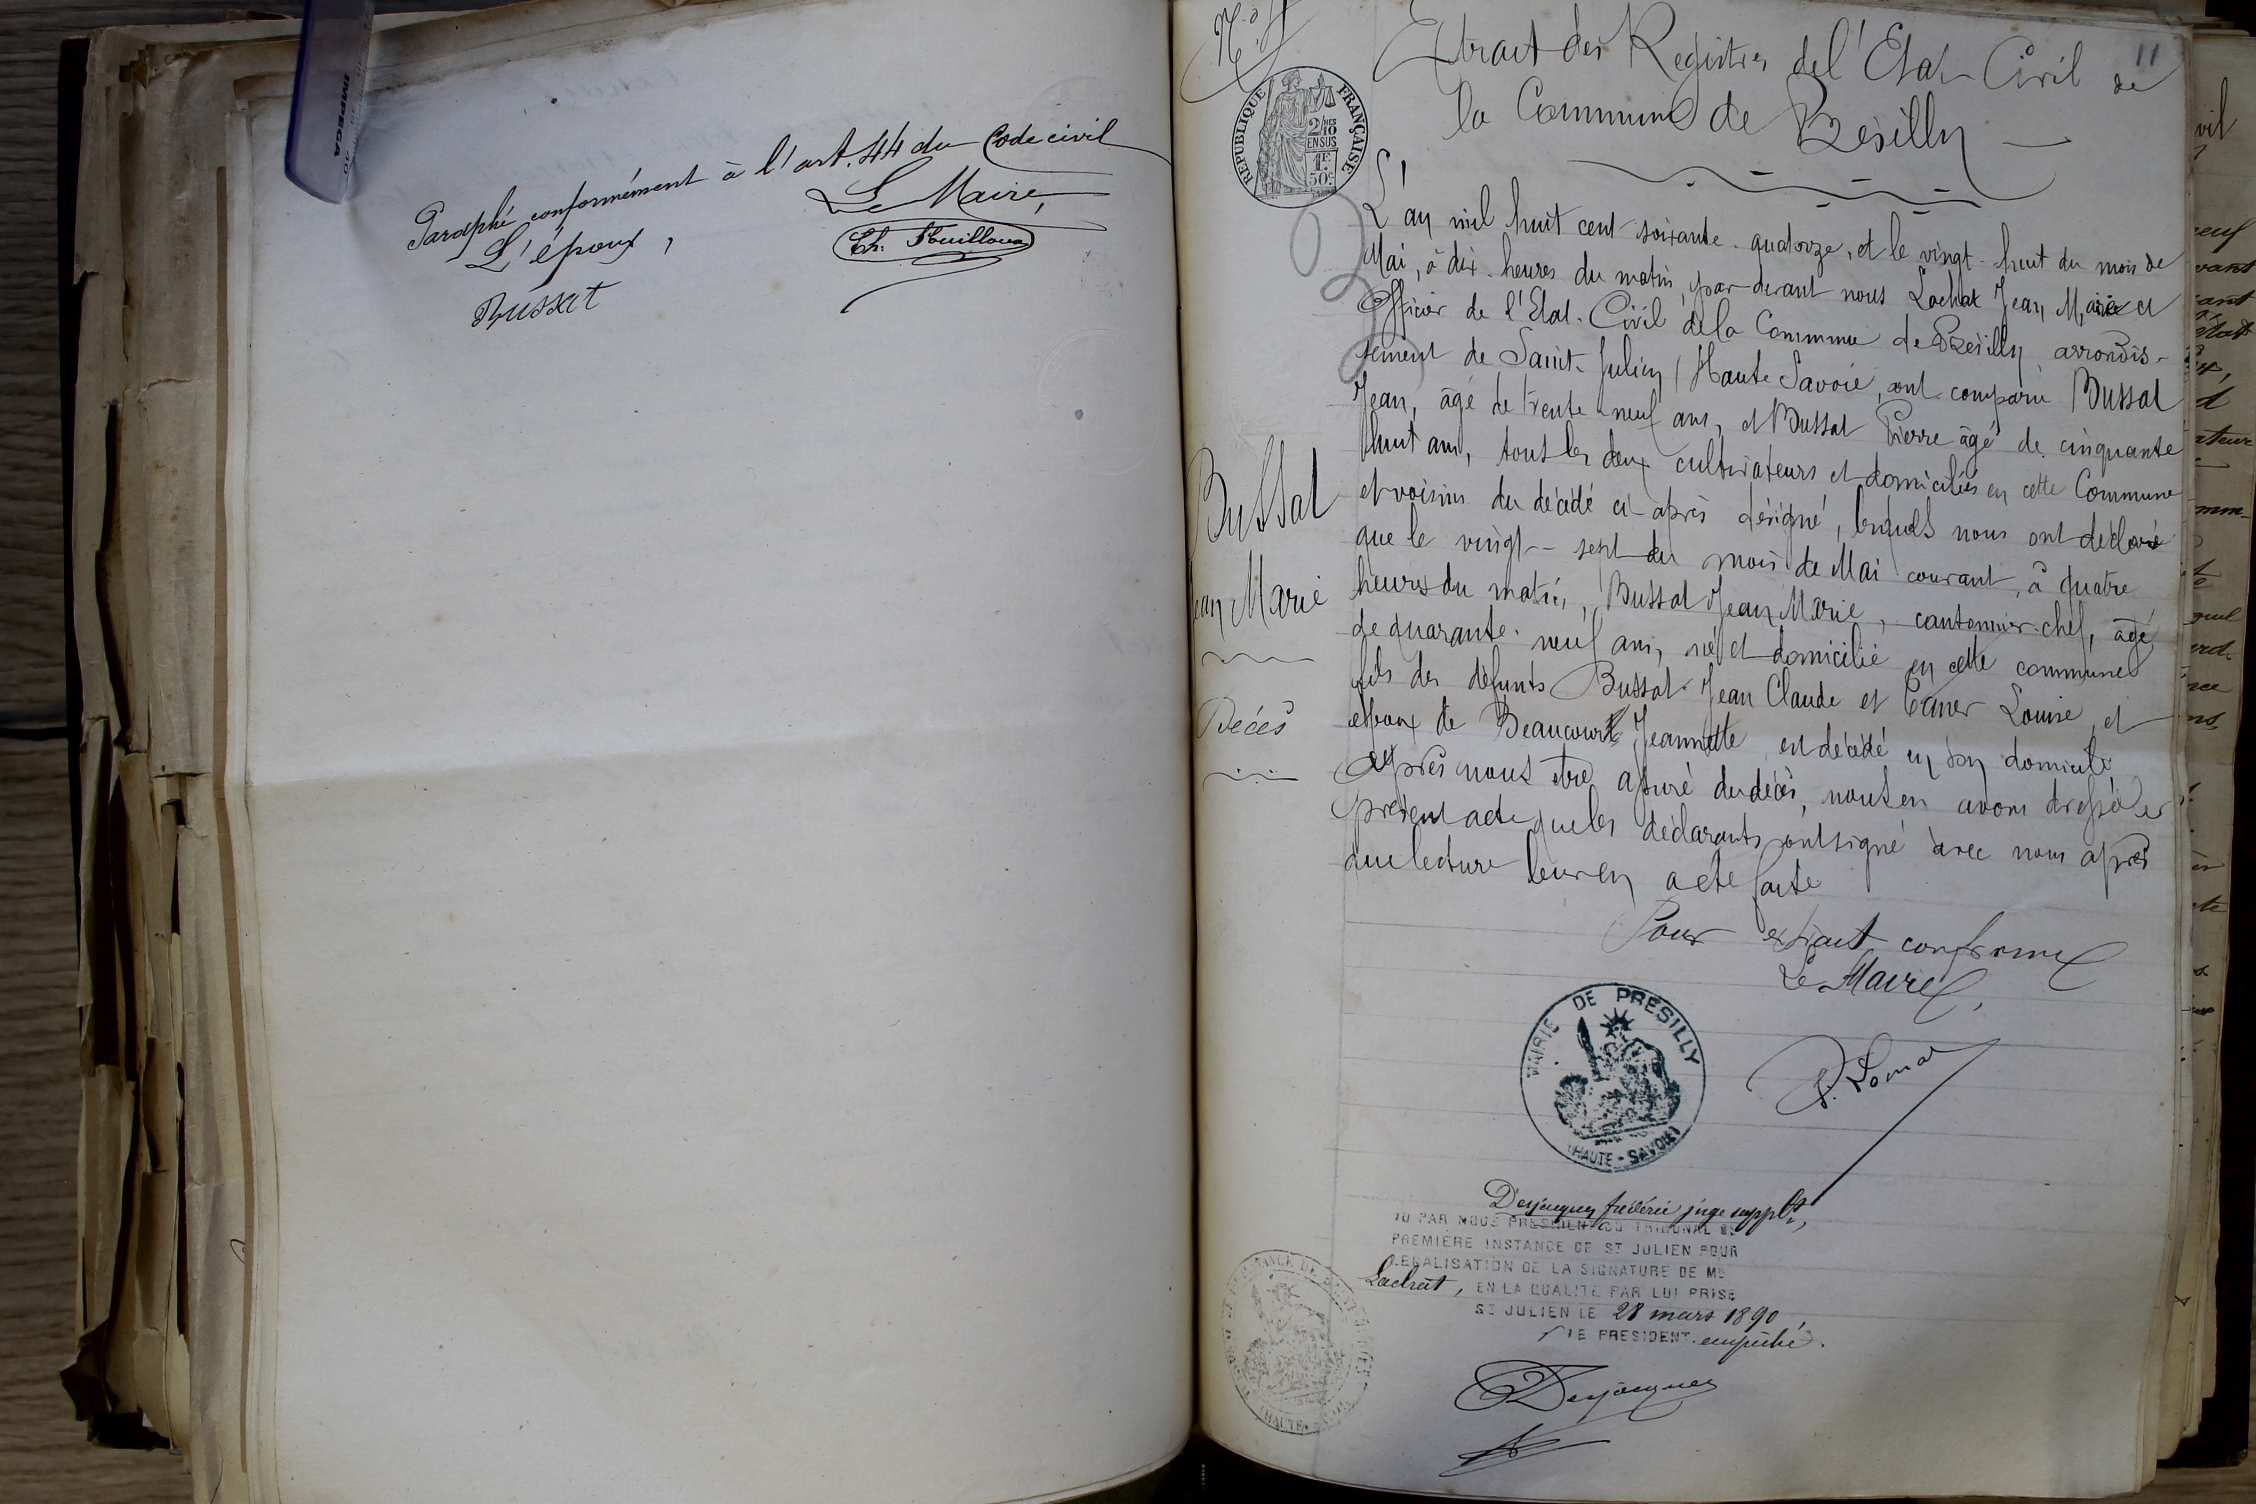 IMPEGA
Paraphé conformément à l'art. 44 du Code civil
L'époux,
Le Maire,
Bussat
Ch. Fouilloux
11
Extrait des Registres de l'Etat Civil de
la Commune de Présilly
RÉPUBLIQUE FRANÇAISE
2/10 EN SUS
1F 50c
L'an mil huit cent soixante-quatorze, et le vingt-huit du mois de
Mai, à dix heures du matin, par devant nous Lachat Jean Marie
Officier de l'Etat-Civil de la Commune de Présilly arrondis-
sement de Saint-Julien (Haute Savoie, ont comparu Bussat
Jean, âgé de trente neuf ans, et Bussat Pierre âgé de cinquante
huit ans, tous les deux cultivateurs et domiciliés en cette Commune
et voisins du décédé ci-après désigné, lesquels nous ont déclaré
que le vingt-sept du mois de Mai courant, à quatre
heures du matin, Bussat Jean Marie, cantonnier-chef, âgé
de quarante-neuf ans, né et domicilié en cette commune
fils des défunts Bussat Jean Claude et Louise, et
époux de Beaucourt Jeannette, est décédé en son domicile,
après nous être assuré du décès, nous en avons dressé le
présent acte que les déclarants ont signé avec nous après
que lecture leur en a été faite
Bussat
Jean Marie
Décès
Pour extrait conforme
Le Maire,
MAIRIE DE PRÉSILLY
(HAUTE-SAVOIE)
Desjacques frédéric juge supplt,
VU PAR NOUS PRESIDENT DU TRIBUNAL DE
PREMIÈRE INSTANCE DE ST JULIEN POUR
LEGALISATION DE LA SIGNATURE DE MR
Lachat, EN LA QUALITE PAR LUI PRISE
ST JULIEN LE 28 mars 1890
LE PRESIDENT empêché.
Desjacques